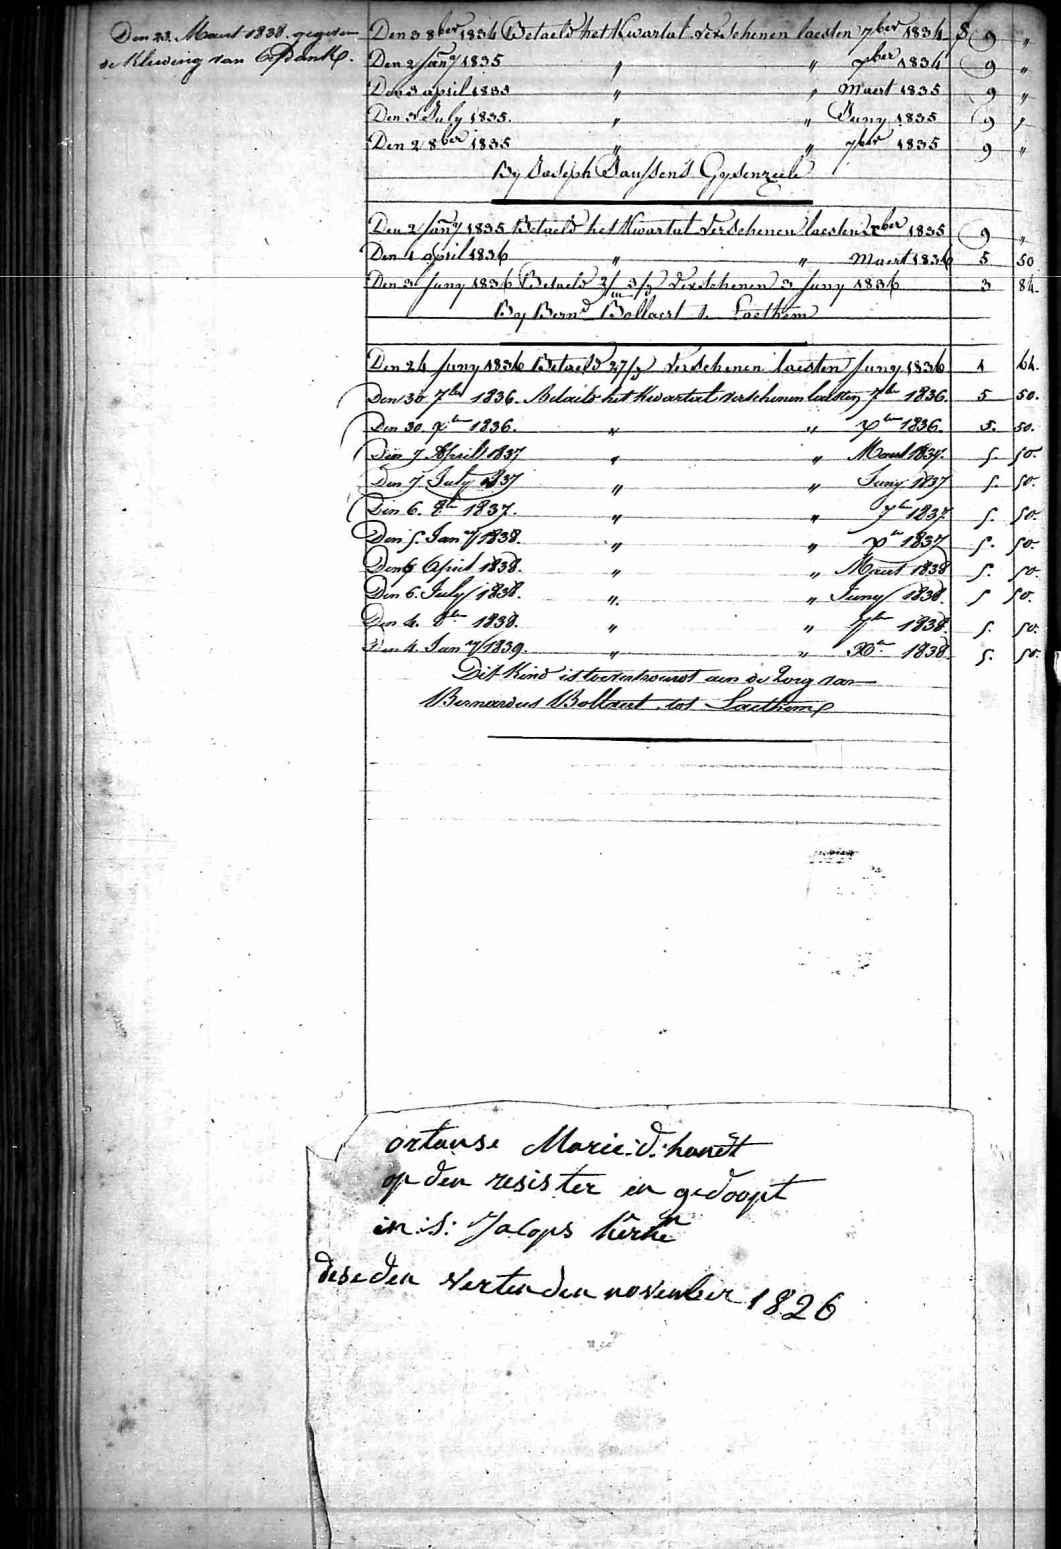 Den 23. Maert 1838. gegeven
de Kleeding van
Den 3 8ber 1834 Betaeld het Kwartal verschenen laesten 7ber 1834 f 9 "
Den 2 Jany 1835 " " xber 1834 9 "
Den 3 april 1835 " " Maert 1835 9 "
Den 3 July 1835. " " Juny 1835 9 "
Den 2 8ber 1835 " " 7ber 1835 9 "
By Joseph Janssens Gysenzeele
Den 2 Jany 1835 Betaeld het Kwartal verschenen laesten xber 1835 9 "
Den 4 april 1836 " " Maert 1836 5 50
Den 3 Juny 1836 Betaeld 2/m 3/j verschenen 3 Juny 1836 3 84.
By Bernd Bollaert te Laethem
Den 24 Juny 1836 Betaeld 27/j verschenen laesten Juny 1836 1 64.
Den 30. 7ber 1836. Betaeld het Kwartaal verschenen laesten 7ber 1836. 5 50.
Den 30. xber 1836. " " xber 1836. 5. 50.
Den 7 April 1837 " " Maert 1837. 5. 50.
Den 7. July 1837 " " Juny 1837 5. 50.
Den 6. 8ber 1837. " " 7ber 1837 5. 50.
Den 5. Jany 1838. " " xber 1837 5. 50.
Den 6 April 1838. " " Maert 1838 5. 50.
Den 6. July 1838. " " Juny 1838. 5 50.
Den 4. 8ber 1838. " " 7ber 1838. 5. 50.
Den 4. Jany 1839. " " xber 1838. 5. 50.
Dit Kind is toevertrouwt aen de Zorg van
Bernardus Bollaert tot Laethem
ortanse Marie: d: hondt
op den resister en gedoopt
in S: Jacops kerke
dese den verten den november 1826